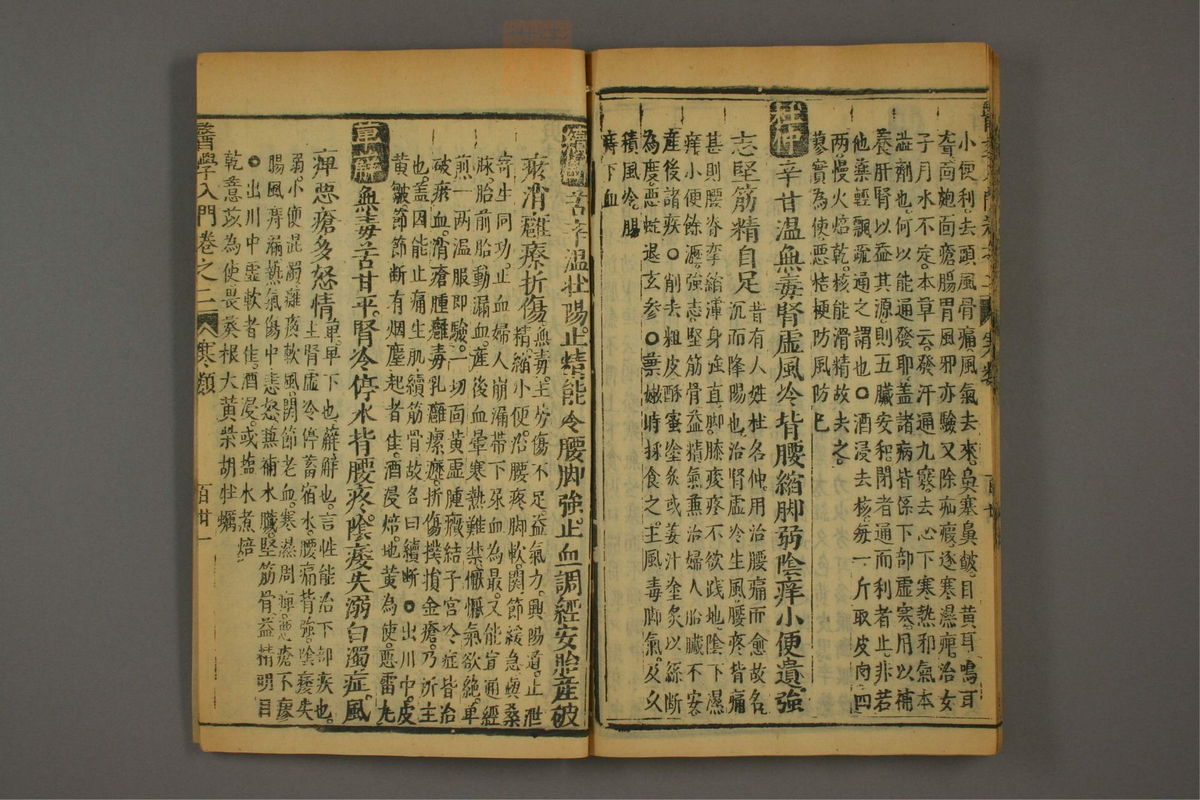 小便利去頭風骨痛風氣去來鼻塞鼻皶目黄耳鳴耳
聾齒齒面瘡腸胃風邪亦驗又除疝瘕逐寒濕痺治女
子月水不定本草云發汗通九竅去心下寒熱和氣本
澁劑也何以能通發耶盖諸病皆係下部虛寒用以補
養肝腎以益其源則五臟安和閉者通而利者止非若
他藥輕飄疏通之謂也○酒浸去核每一斤取皮肉四
兩慢火焙乾核能滑精故去之
蓼實為使惡桔梗防風防己
杜仲辛甘温無毒腎虛風冷背腰縮脚弱陰痒小便遺強
志堅筋精自足昔有人姓杜名仲用治腰痛而愈故名
沉而降陽也治腎虛冷生風腰疼背痛
甚則腰脊孪給渾身強直脚膝痠疼不欲踐地陰下濕
痒小便餘瀝強志堅筋骨益精氣兼治婦人胎臟不安
產後諸疾○削去粗皮酥蜜塗炙或姜汁塗炙以絲斷
為度惡蛇退玄參○葉嫩時採食之主風毒脚氣及久
積風冷腸
痔下血
續斷苦辛温壯陽止精能令腰脚強止血調經安胎產破
瘀消癰瘰折傷無毒主勞傷不足益氣力興陽道止泄
精縮小便治腰疼脚軟関節緩急與桑
寄生同功止血婦人崩漏帶下尿血為最又能宣通經
脉胎前胎動漏血產後血暈寒熱難禁懨懨氣欲絶單
煎一兩温服即驗一切面黄虛腫癥結子宮冷症皆治
破瘀血消瘡腫癰毒乳癰瘰癧折傷撲損金瘡乃所主
也盖因能止痛生肌續筋骨故名曰續斷○出川中皮
黄皺節節斷有烟塵起者佳酒浸焙地黄為使惡雷丸
萆薢無毒苦甘平腎冷停水背腰疼陰痿失溺白濁症風
痺惡瘡多怒情萆卑下也薢解也言性能治下部疾也
主腎虛冷停蓄宿水腰痛背強陰痿失
弱小便混濁癰後軟風関節老血寒濕周痺惡瘡不瘳
腸風痔漏熱氣傷中恚怒兼補水臟堅筋骨益精明目
○出川中虛軟者佳酒浸或塩水煮焙
乾薏苡為使畏葵根大黄柴胡牡蠣
醫學入門卷之二 寒類 百廿一